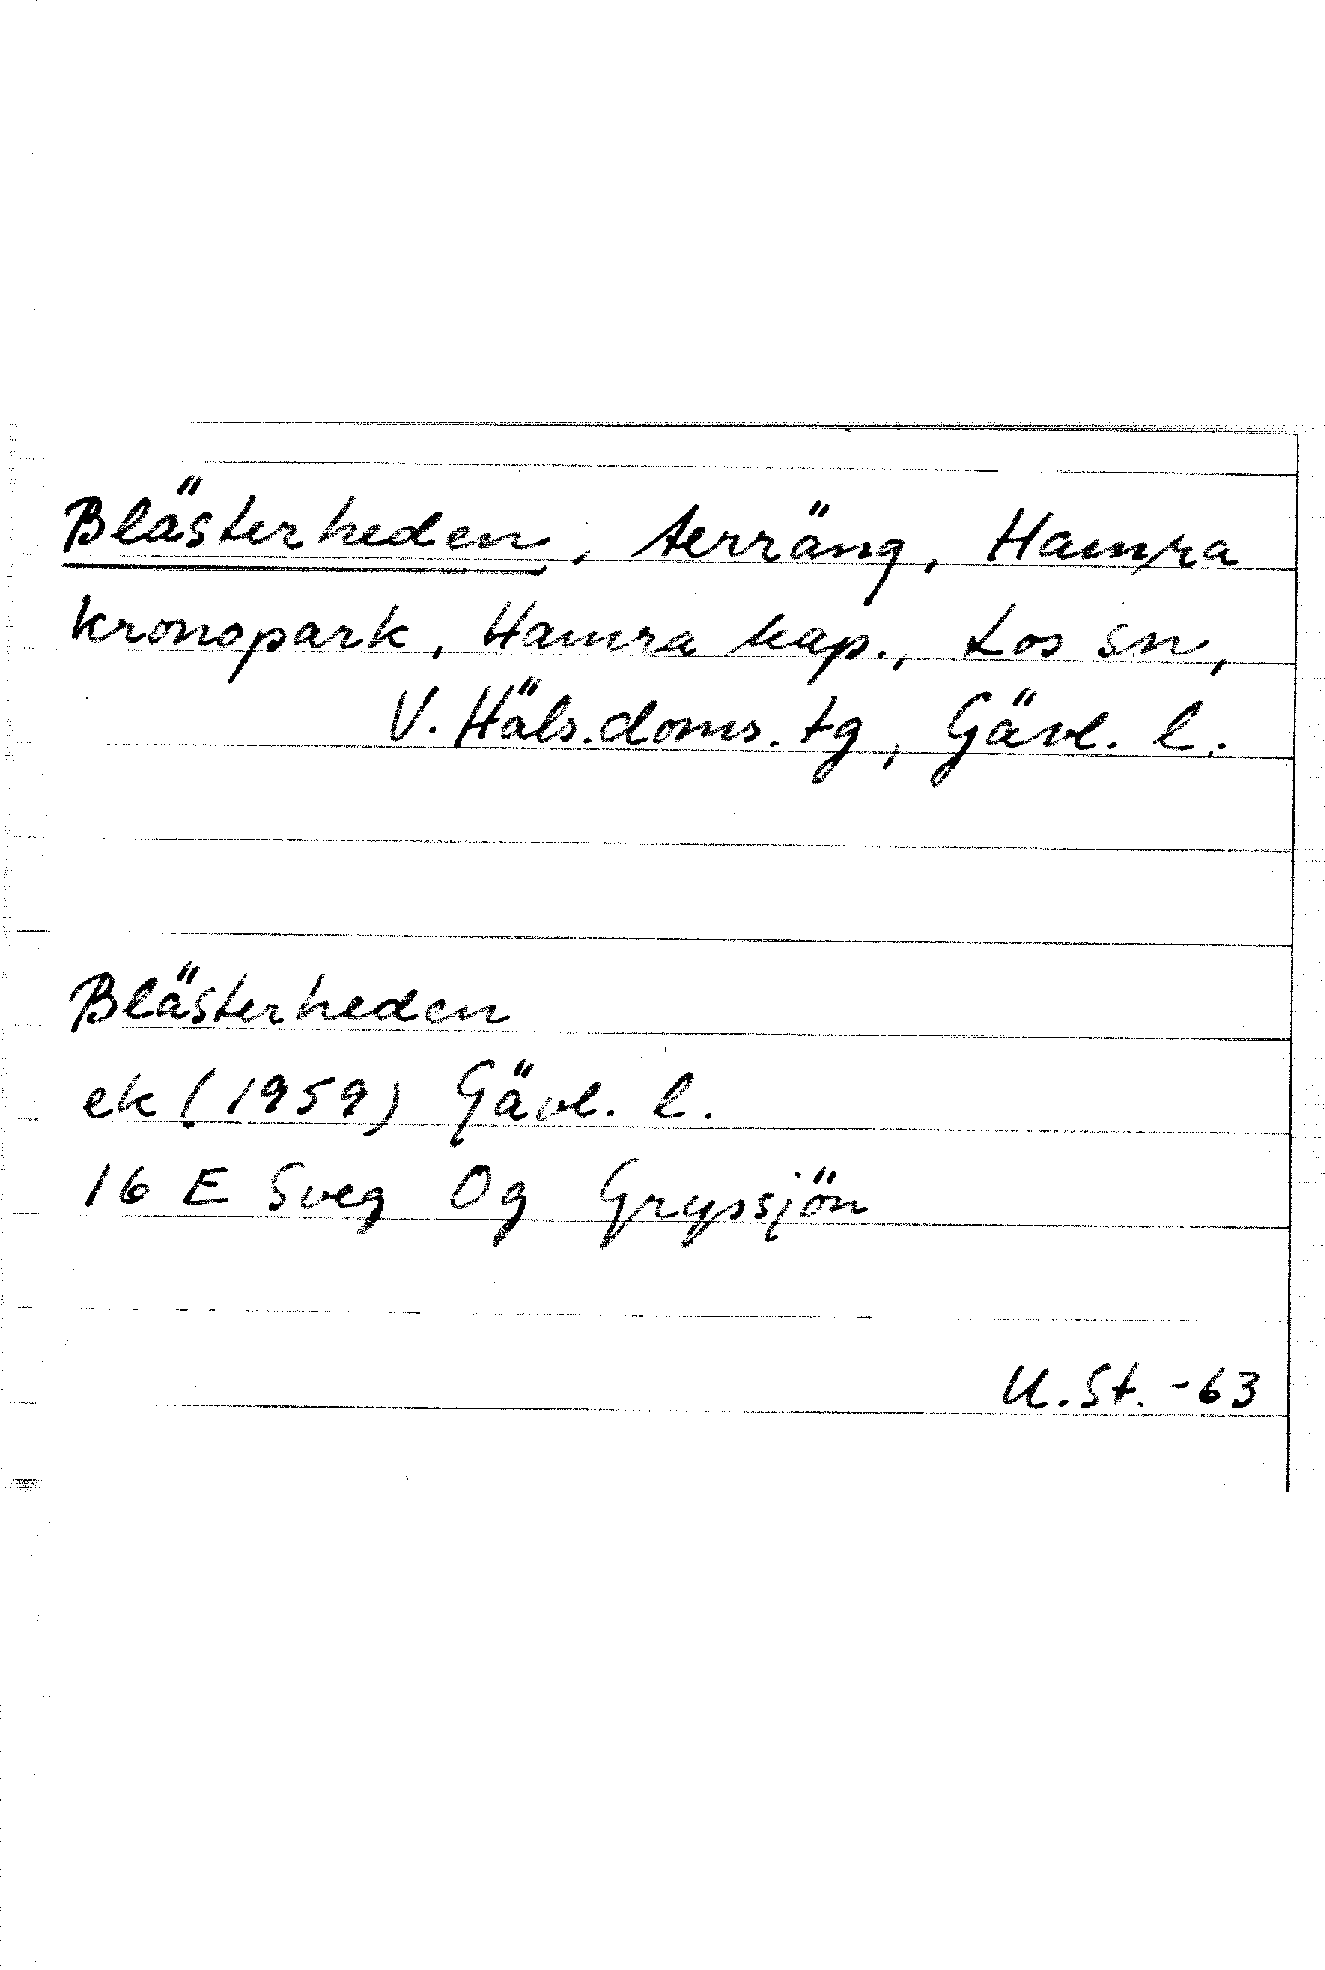 Blästerheden, terräng, Hamra
kronopark, Hamra kap., Los sn,
V. Häls.doms.tg, Gävl. l.
Blästerheden
ek (1959) Gävl. l.
16 E Sveg 0g Gryssjön
U.St. -63